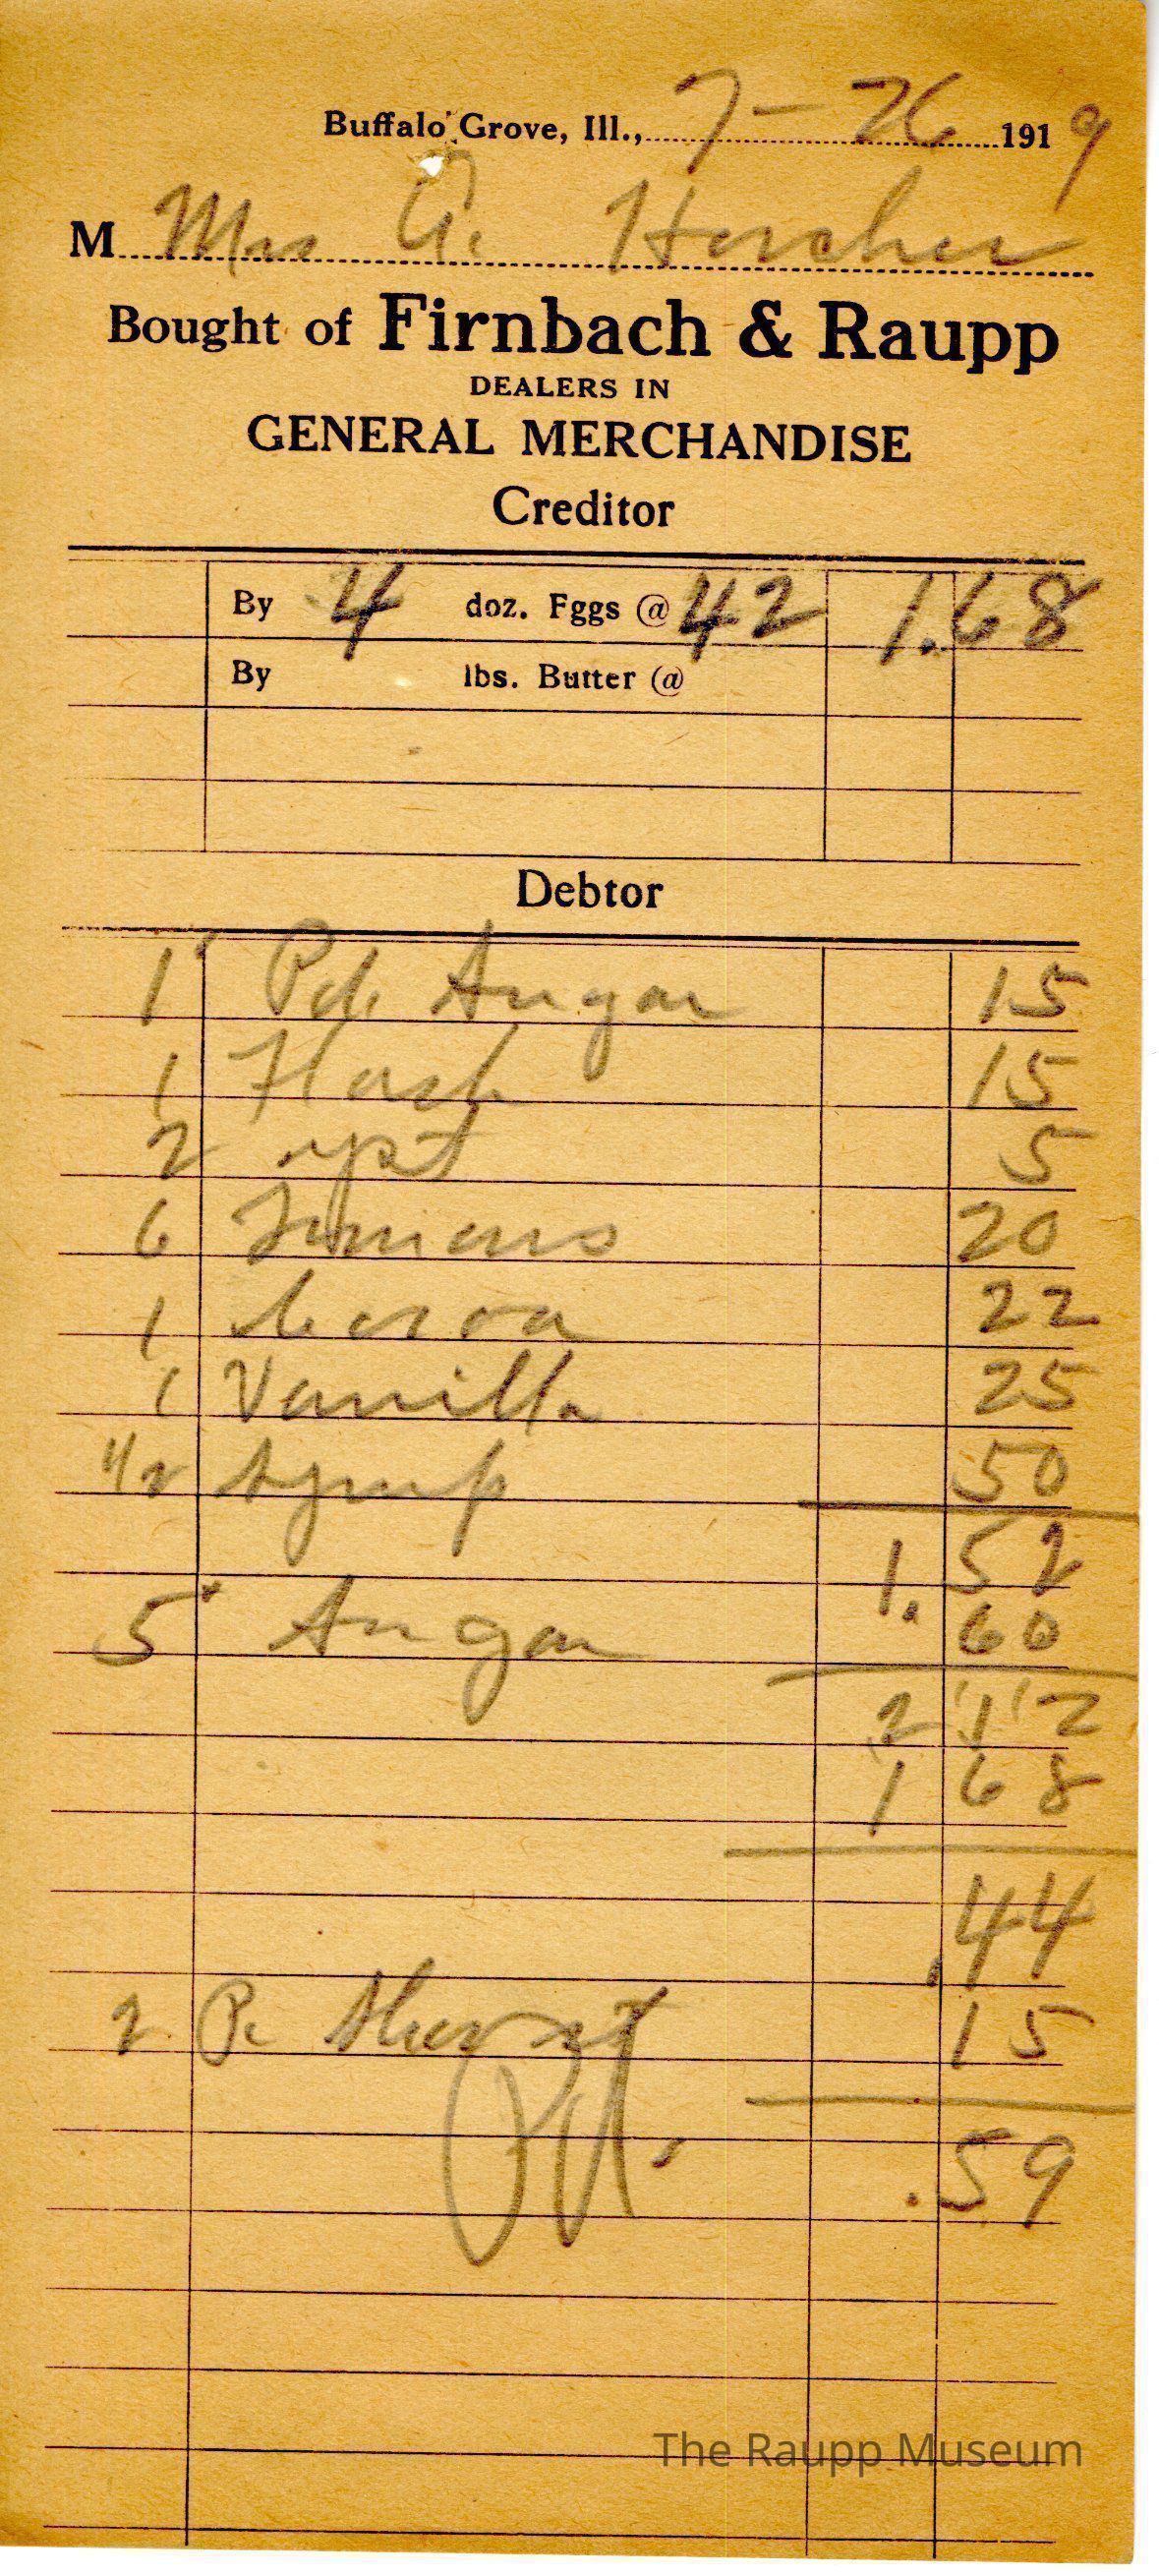 Buffalo Grove, Ill., 7-26 1919
M Mrs A. Horcher
Bought of Firnbach & Raupp
DEALERS IN
GENERAL MERCHANDISE
Creditor
By 4 doz. Fggs @ 42 1.68
By lbs. Butter @
Debtor
1 Pd. Sugar 15
1 Hash 15
2 yst 5
6 Lemons 20
1 Cocoa 22
1 Vanilla 25
1/2 Syrup 50
1.52
5 Sugar 60
2 12
1 68
.44
2 P. 15
Pd.
.59
The Raupp Museum